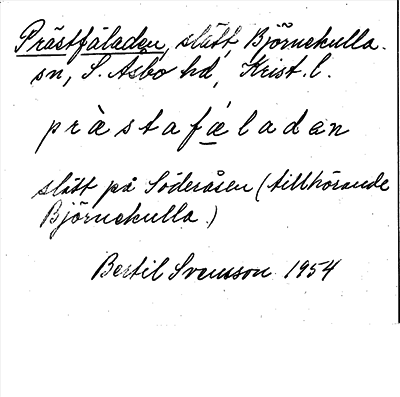 Prästfäladen, slätt, Björnekulla
sn, S. Åsbo hd, Krist. l.
prà̈stafä́ladan
slätt på Söderåsen (tillhörande
Björnekulla.)
Bertil Svensson 1954